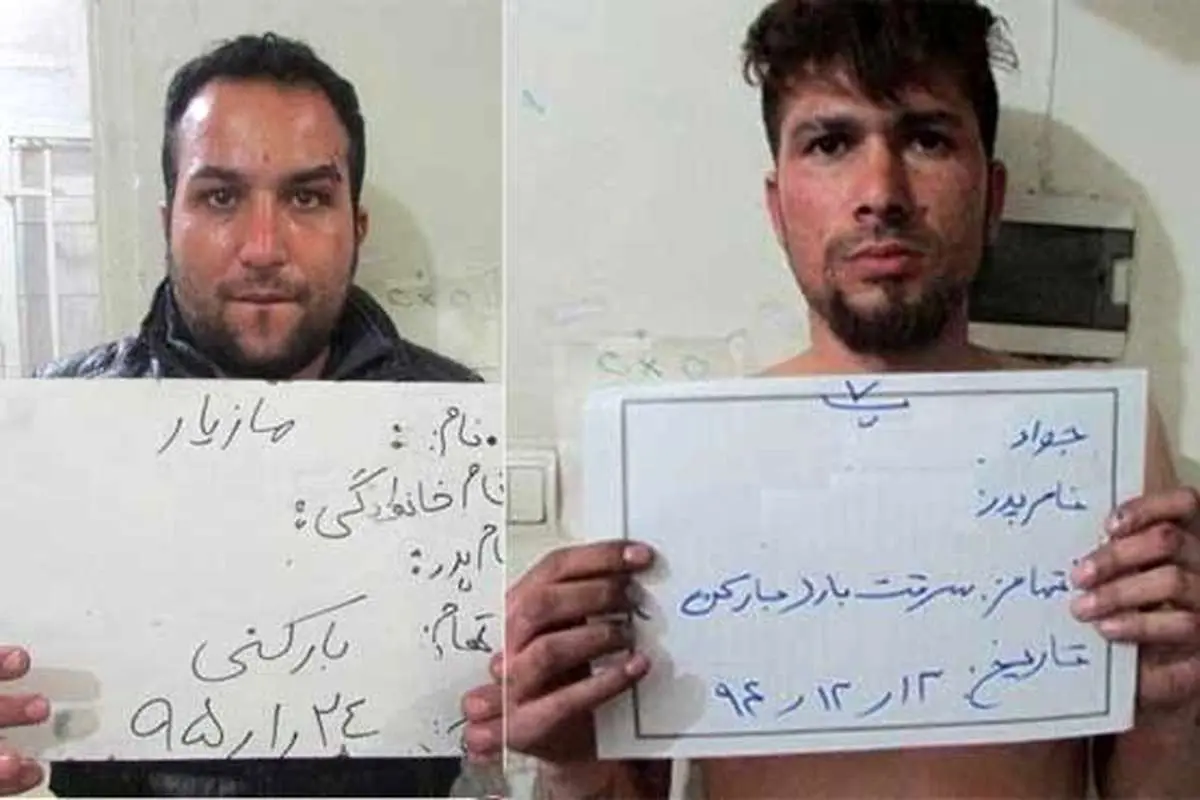 نام: مازیار
نام خانوادگی:
نام پدر:
تهام: بارکنی
۹۵ / ۱ / ۲۴
جواد
نام پدر:
تهام: سرقت بارد
تاریخ: ۹۴ / ۱۲ / ۱۲